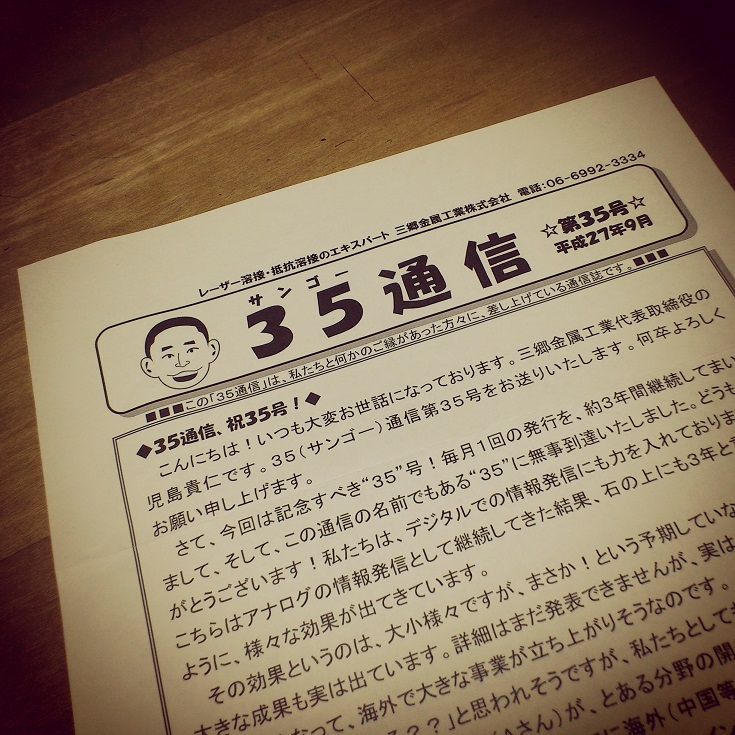 レーザー溶接・抵抗溶接のエキスパート 三郷金属工業株式会社 電話:06-6992-3334
サンゴー
35通信
☆第35号☆
平成27年9月
■■■この「35通信」は、私たちと何かのご縁があった方々に、差し上げている通信誌です。■■■
◆35通信、祝35号!◆
こんにちは!いつも大変お世話になっております。三郷金属工業代表取締役の
児島貴仁です。35(サンゴー)通信第35号をお送りいたします。何卒よろしく
お願い申し上げます。
さて、今回は記念すべき“35”号!毎月1回の発行を、約3年間継続してまい
まして、そして、この通信の名前でもある“35”に無事到達いたしました。どうも
がとうございます!私たちは、デジタルでの情報発信にも力を入れておりま
こちらはアナログの情報発信として継続してきた結果、石の上にも3年と
ように、様々な効果が出てきています。
その効果というのは、大小様々ですが、まさか!という予期していな
大きな成果も実は出ています。詳細はまだ発表できませんが、実は
なって、海外で大きな事業が立ち上がりそうなのです。
る??」と思われそうですが、私たちとして
さん)が、とある分野の開
に海外(中国等